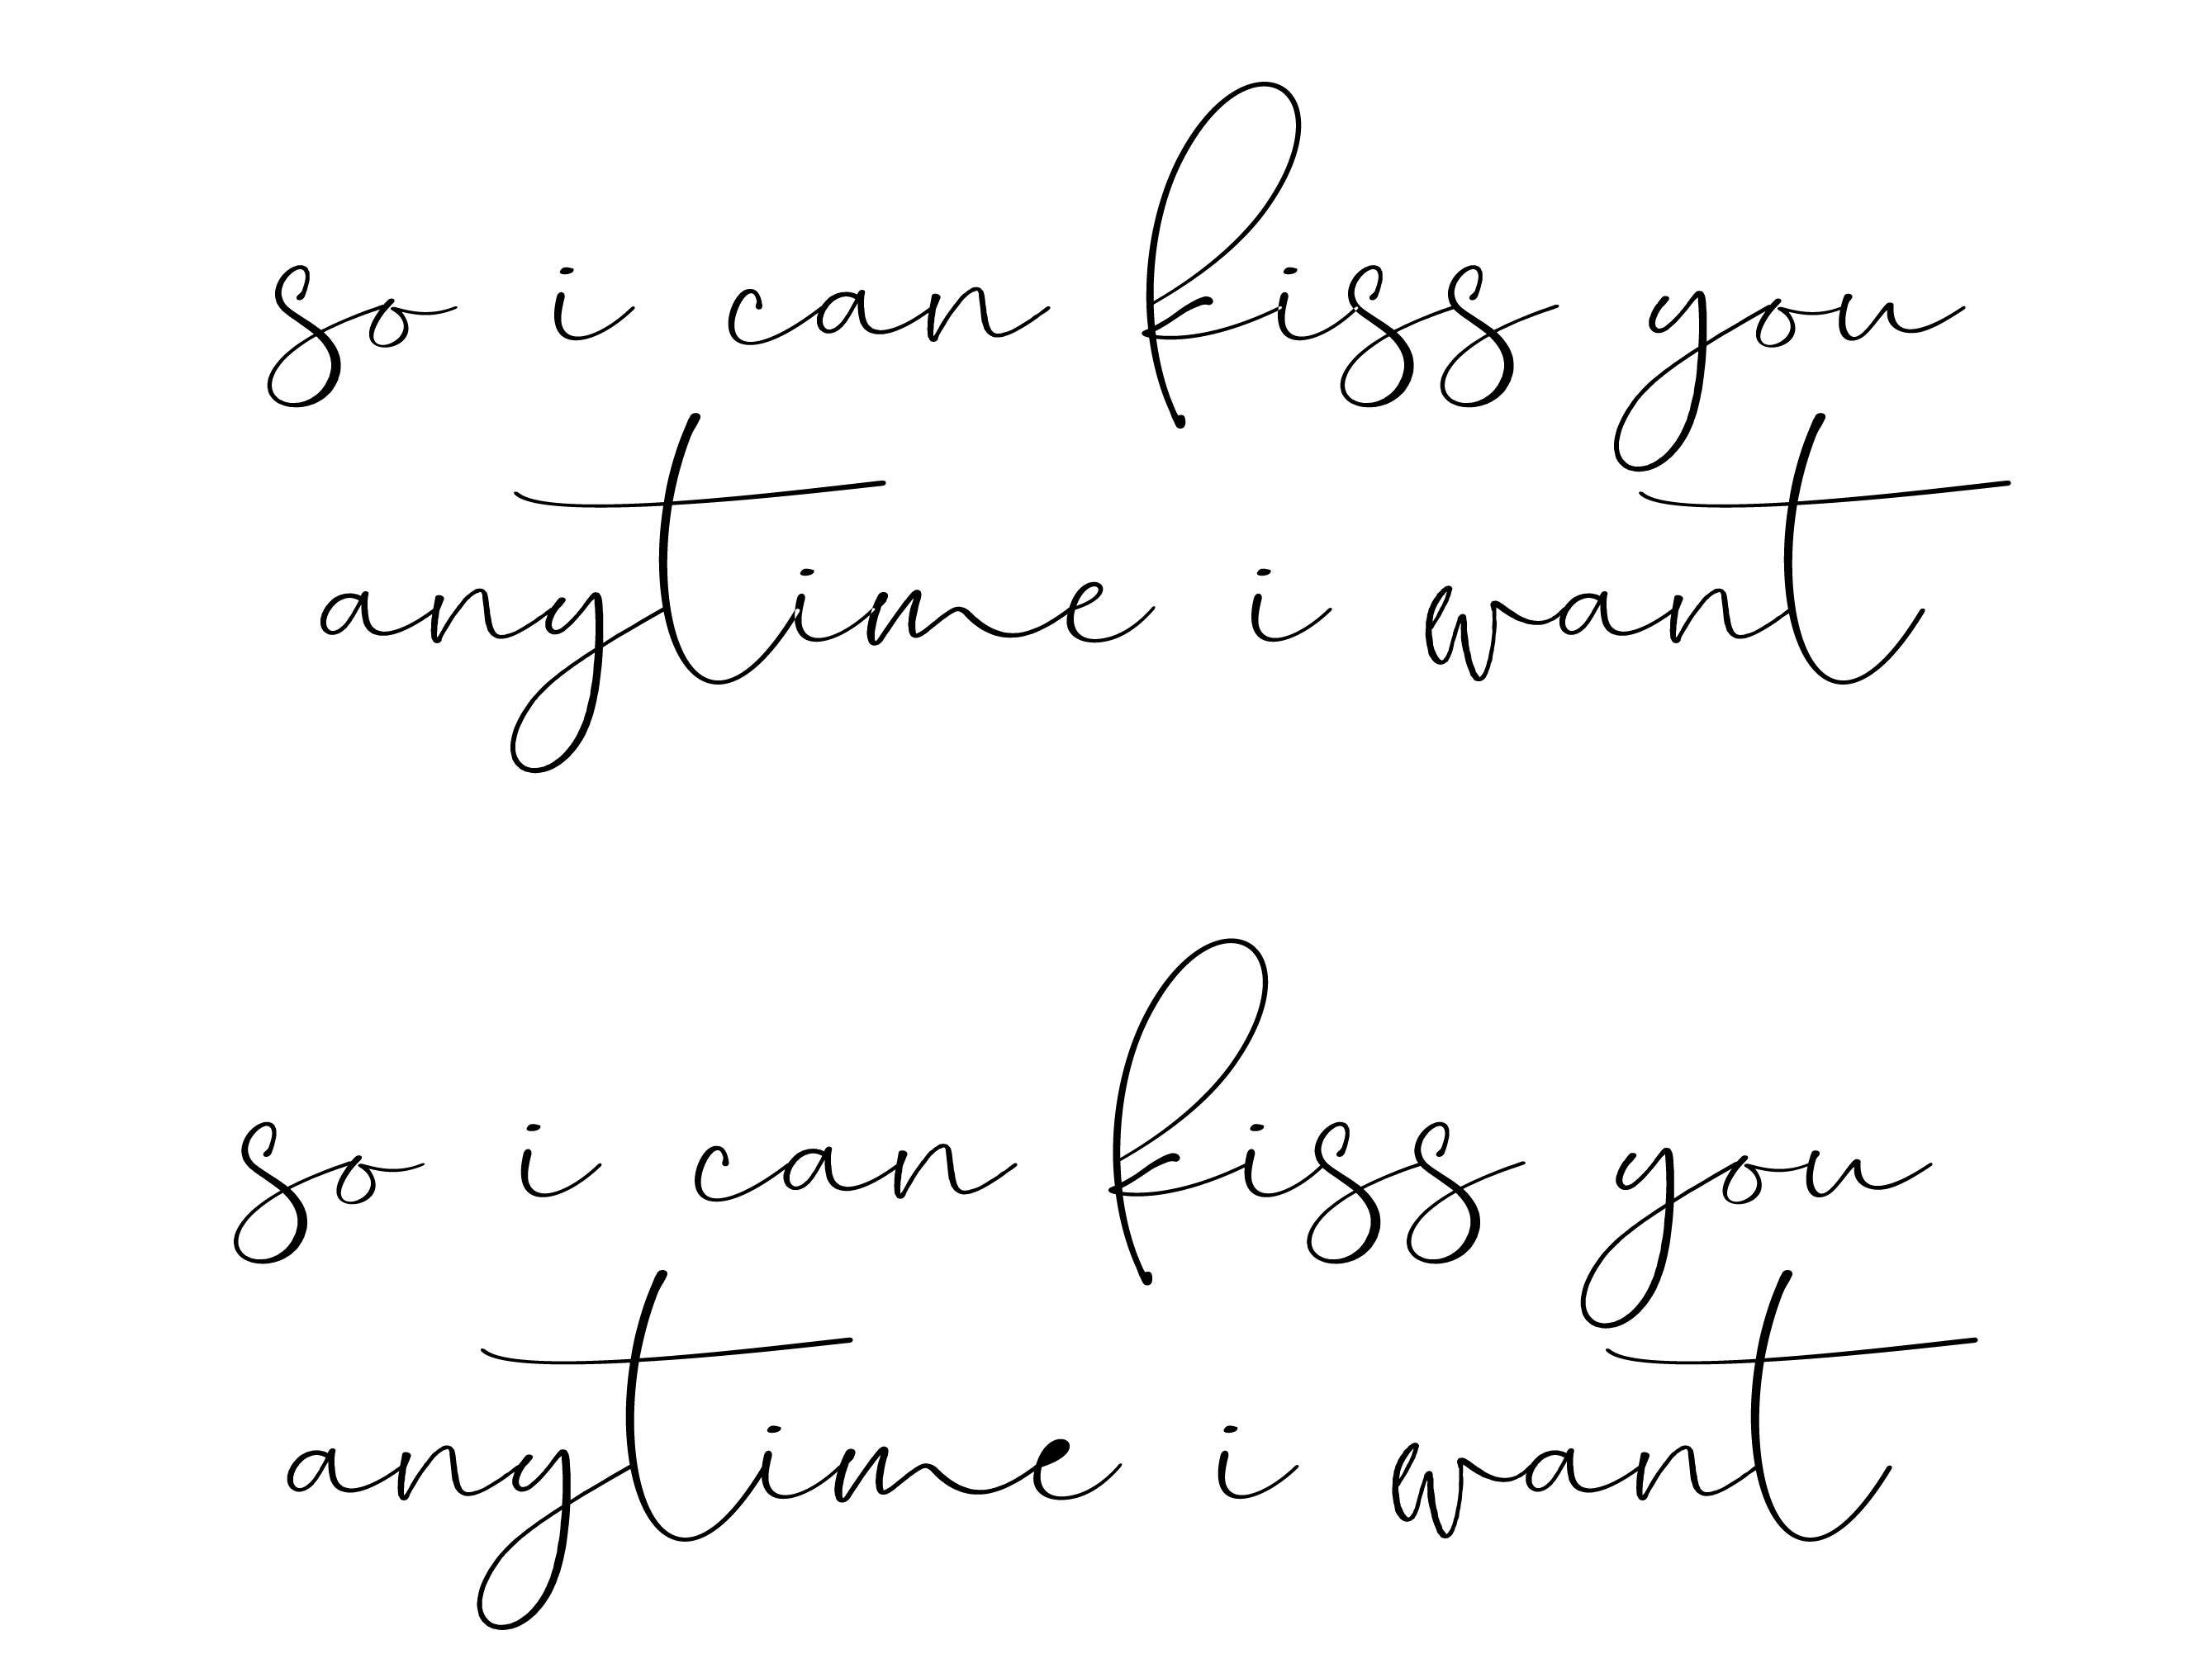 so i can kiss you
anytime i want
so i can kiss you
anytime i want